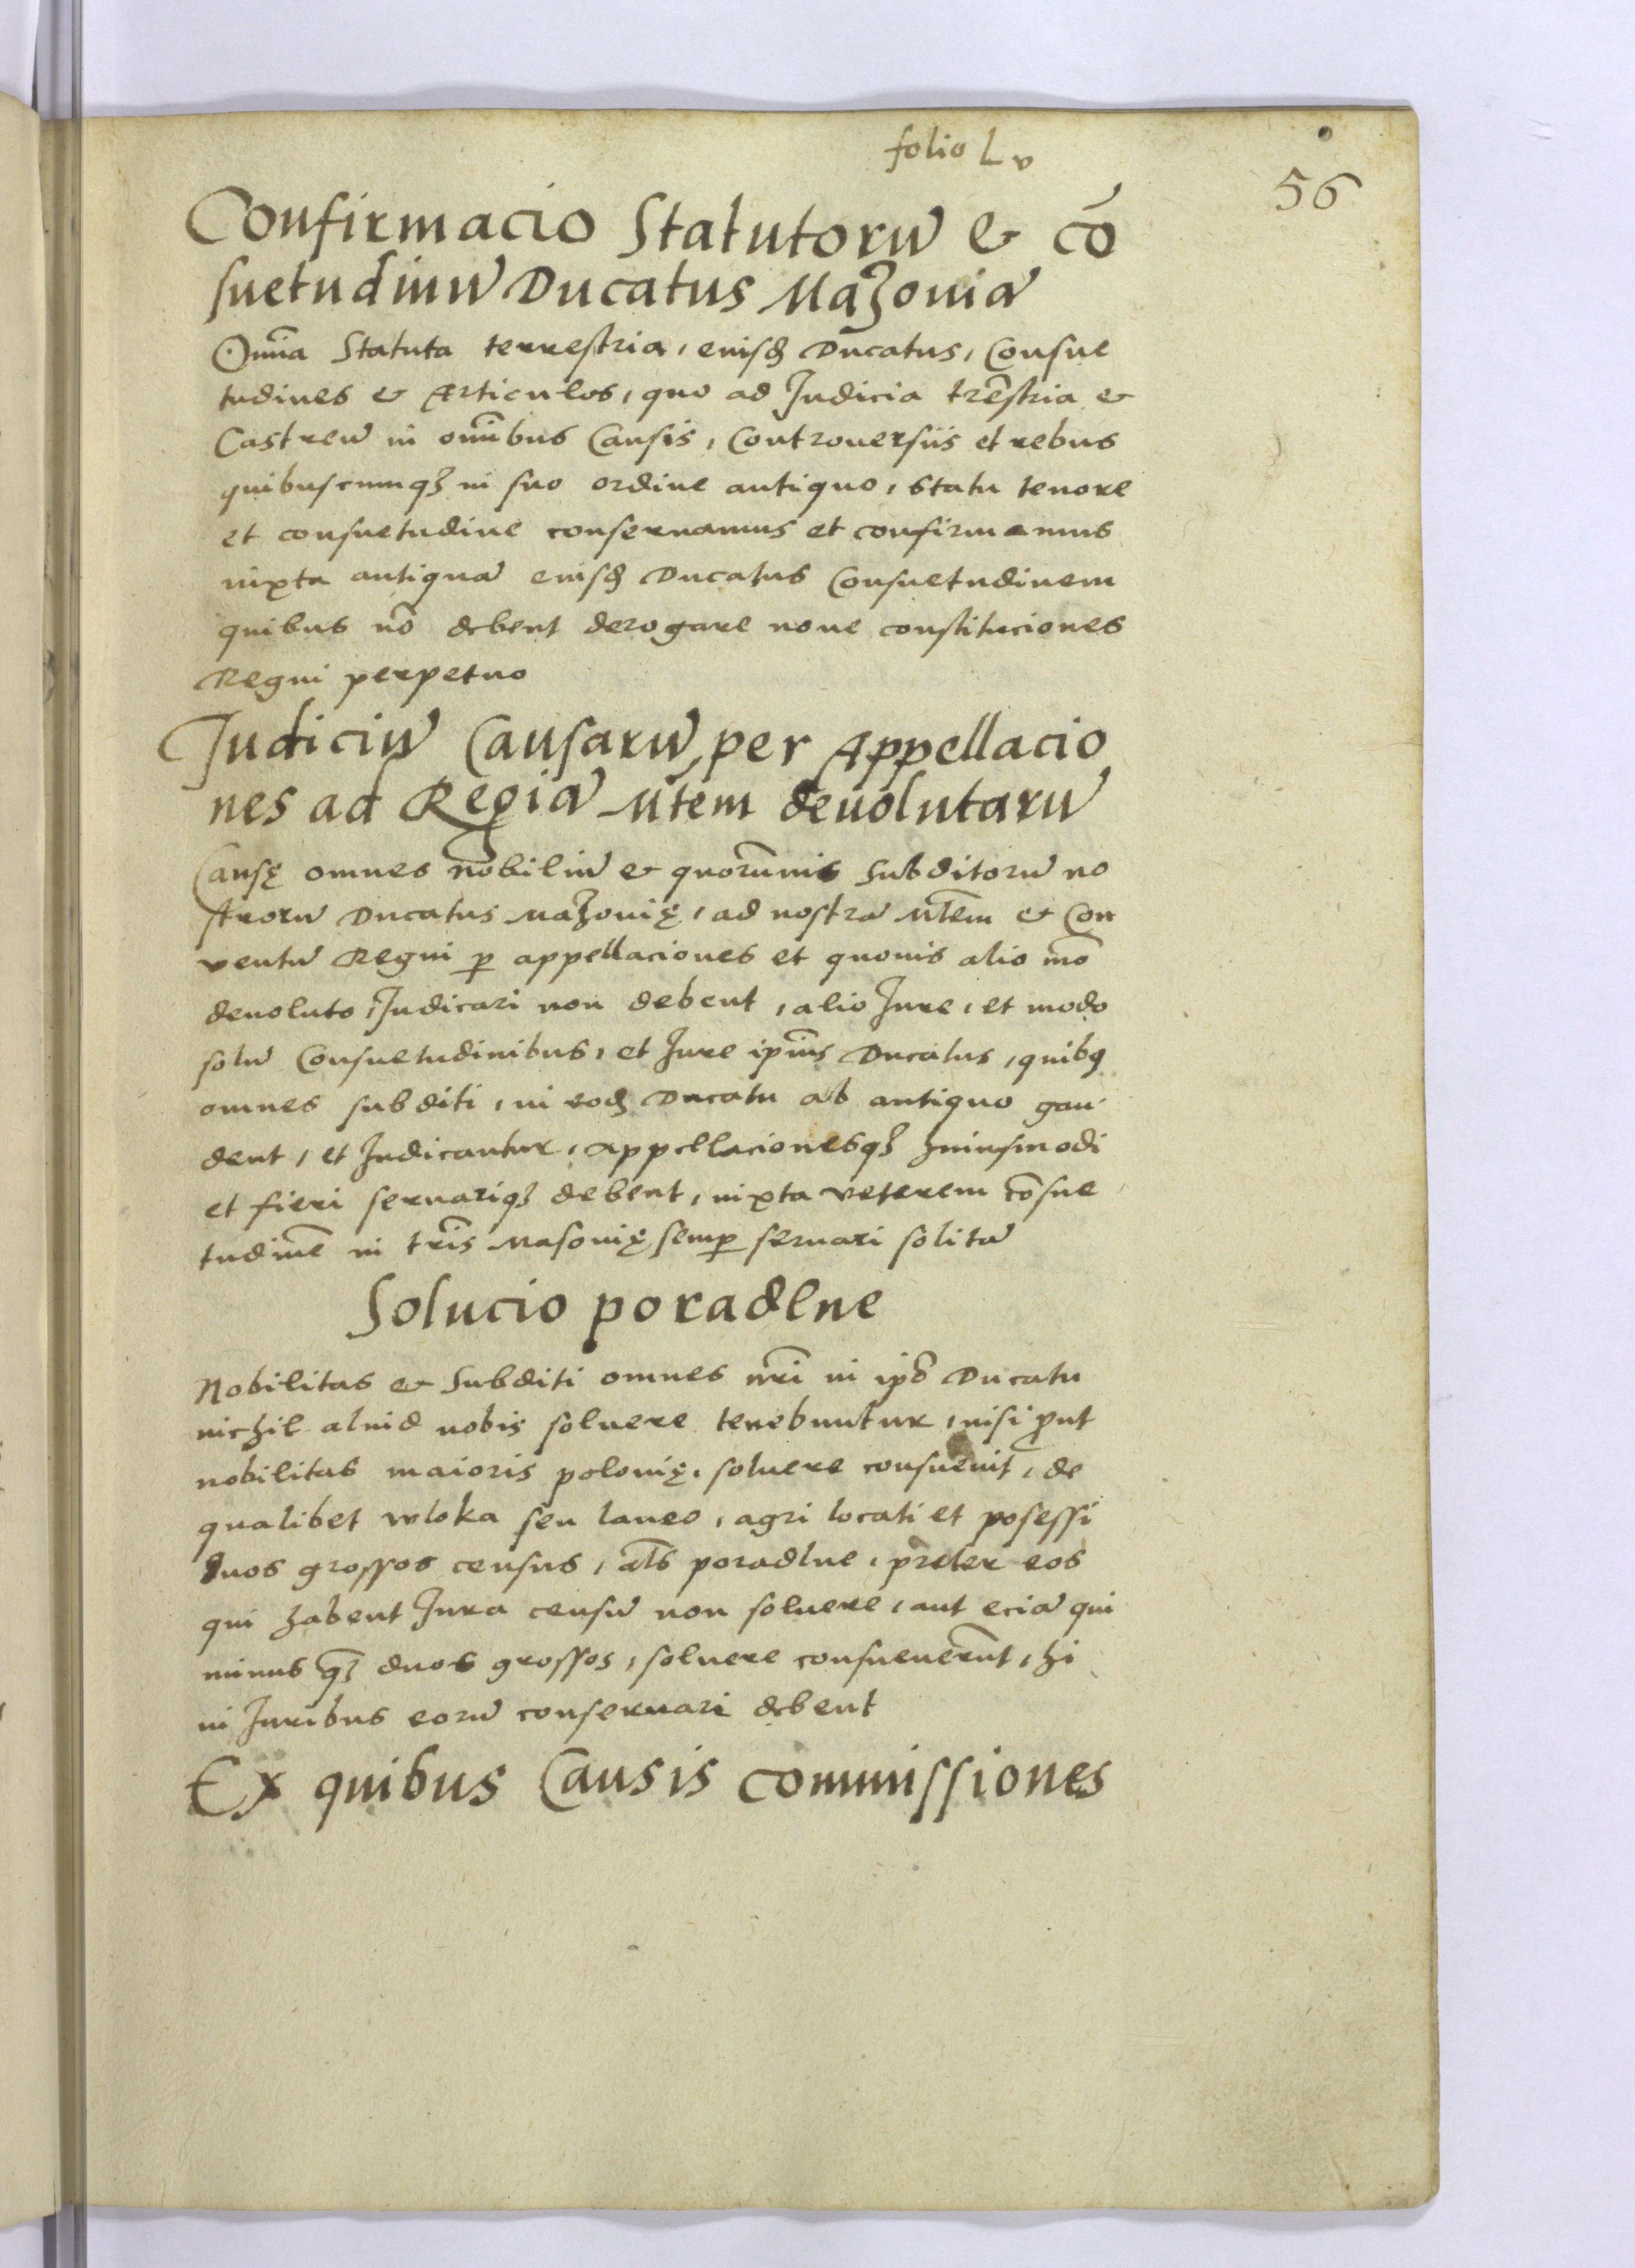 folio Lv
56
Confirmacio Statutorū & cō
suetudinū Ducatus Mazoviā
Om̄ia Statuta terrestria, eiusdē Ducatus, Consue
tudines & Articulos, quo ad Judicia tr̄estria &
Castreñ in om̄ibus Causis, Controuersiis et rebus
quibuscumqꝫ in suo ordine antiquo, statu tenore
et consuetudine conseruamus et confirmamus
iuxta antiquā eiusdē Ducatus Consuetudinem
quibus nō debent derogare noue constituciones
Regni perpetuo
Judiciū Causarū, per Appellacio
nes ad Regiā M̄tem deuolutarū
Causę omnes nobiliū & quorūuis Subditorū no
strorū Ducatus Mazouię, ad nostrā M̄tem & Con
ventū Regni ꝑ appellaciones et quouis alio mō
deuoluto, Judicari non debent, alio Jure, et modo
solū Consuetudinibus, et Jure ip̄ius Ducatus, quibꝯ
omnes subditi, in eodē Ducatu ab antiquo gau
dent, et Judicantur, appellacionesqꝫ huiusmodi
et fieri seruariqꝫ debent, iuxta veterem cōsue
tudinē in tr̄is Masouię semꝑ seruari solitā
Solucio poradlne
Nobilitas & Subditi omnes nr̄i in ip̄o Ducatu
nichil aliud nobis soluere tenebuntur, nisi ꝓut
nobilitas maioris polonię, soluere consueuit, de
qualibet wloka seu laneo, agri locati et posessi
duos grossos census, al̄s poradlne, preter eos
qui habent Jura censū non soluere, aut eciā qui
minus qꝫ̄ duos grossos, soluere consueuer̄nt, hi
in Juribus eorū conseruari debent
Ex quibus Causis commissiones